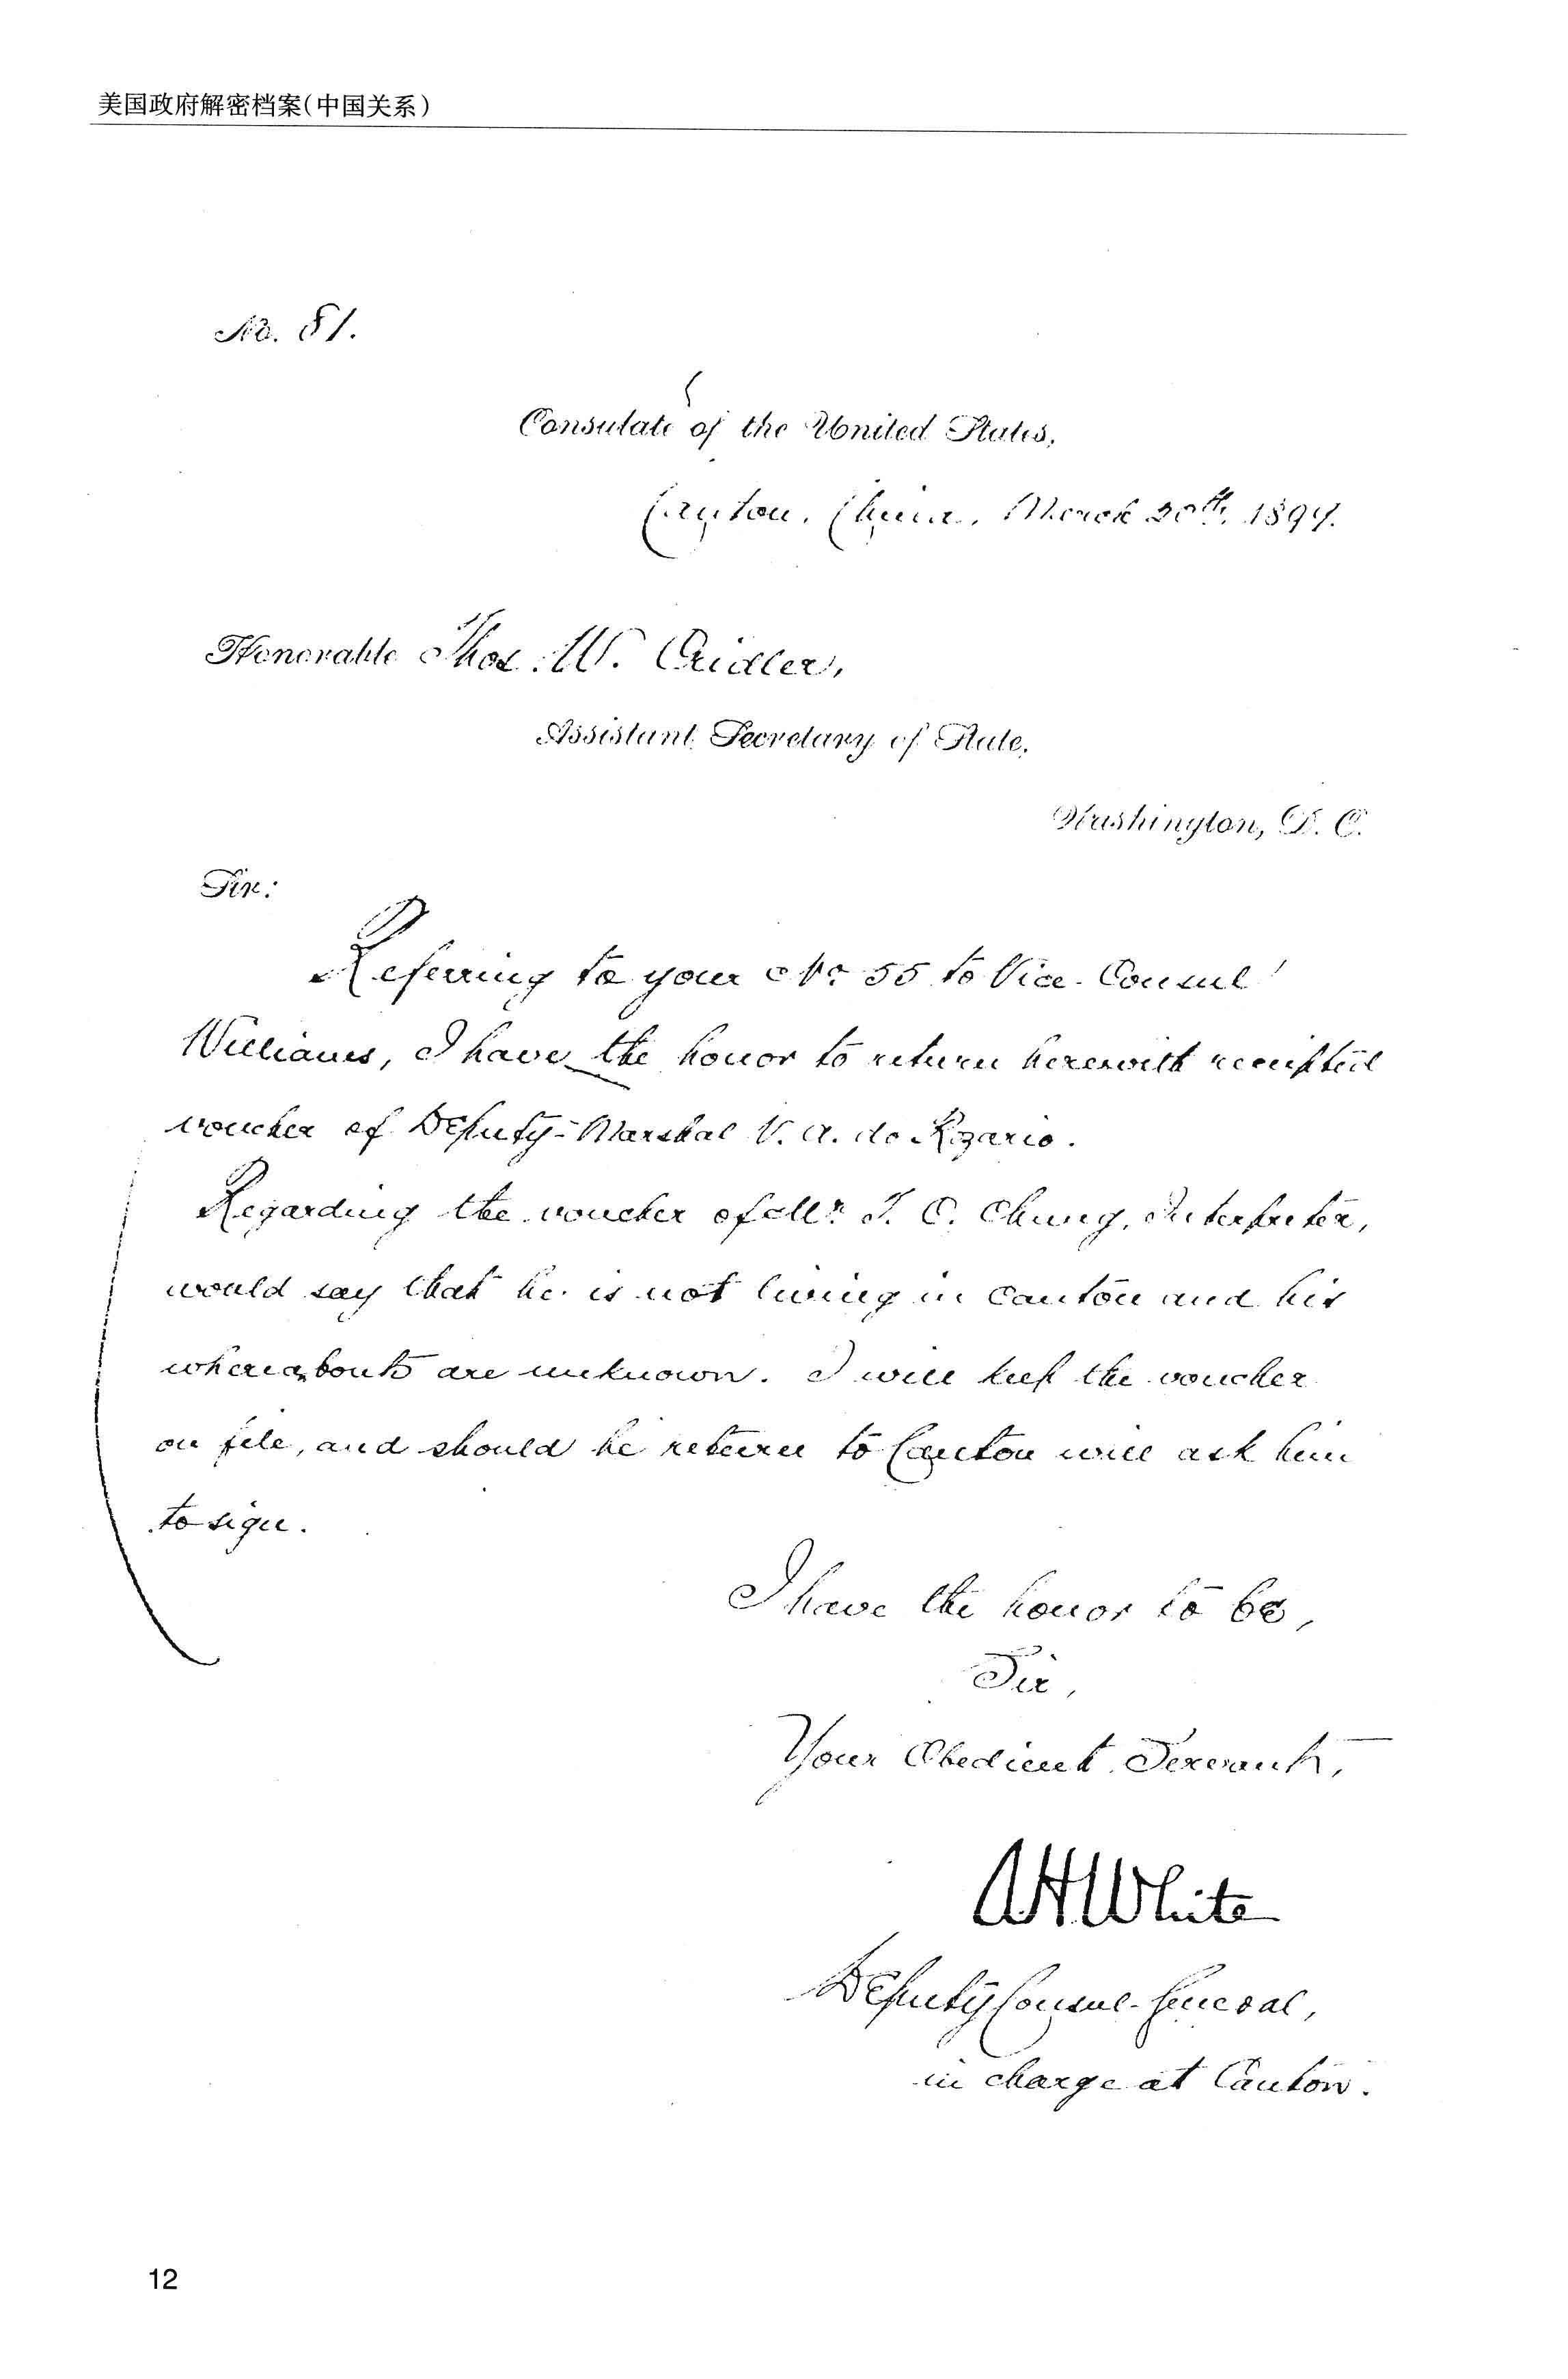 美国政府解密档案(中国关系)
No. 81.
Consulate of the United States,
Canton, China, March 30th, 1899.
Honorable Thos. W. Cridler,
Assistant Secretary of State,
Washington, D. C.
Sir:
Referring to your No 55 to Vice-Consul
Williams, I have the honor to return herewith receipted
voucher of Deputy-Marshal V. A. do Rozario.
Regarding the voucher of Mr T. C. Chung, Interpreter,
would say that he is not living in Canton and his
whereabouts are unknown. I will keep the voucher
on file, and should he return to Canton will ask him
to sign.
I have the honor to be,
Sir,
Your Obedient Servant,
A H White
Deputy Consul-General,
in charge at Canton.
12